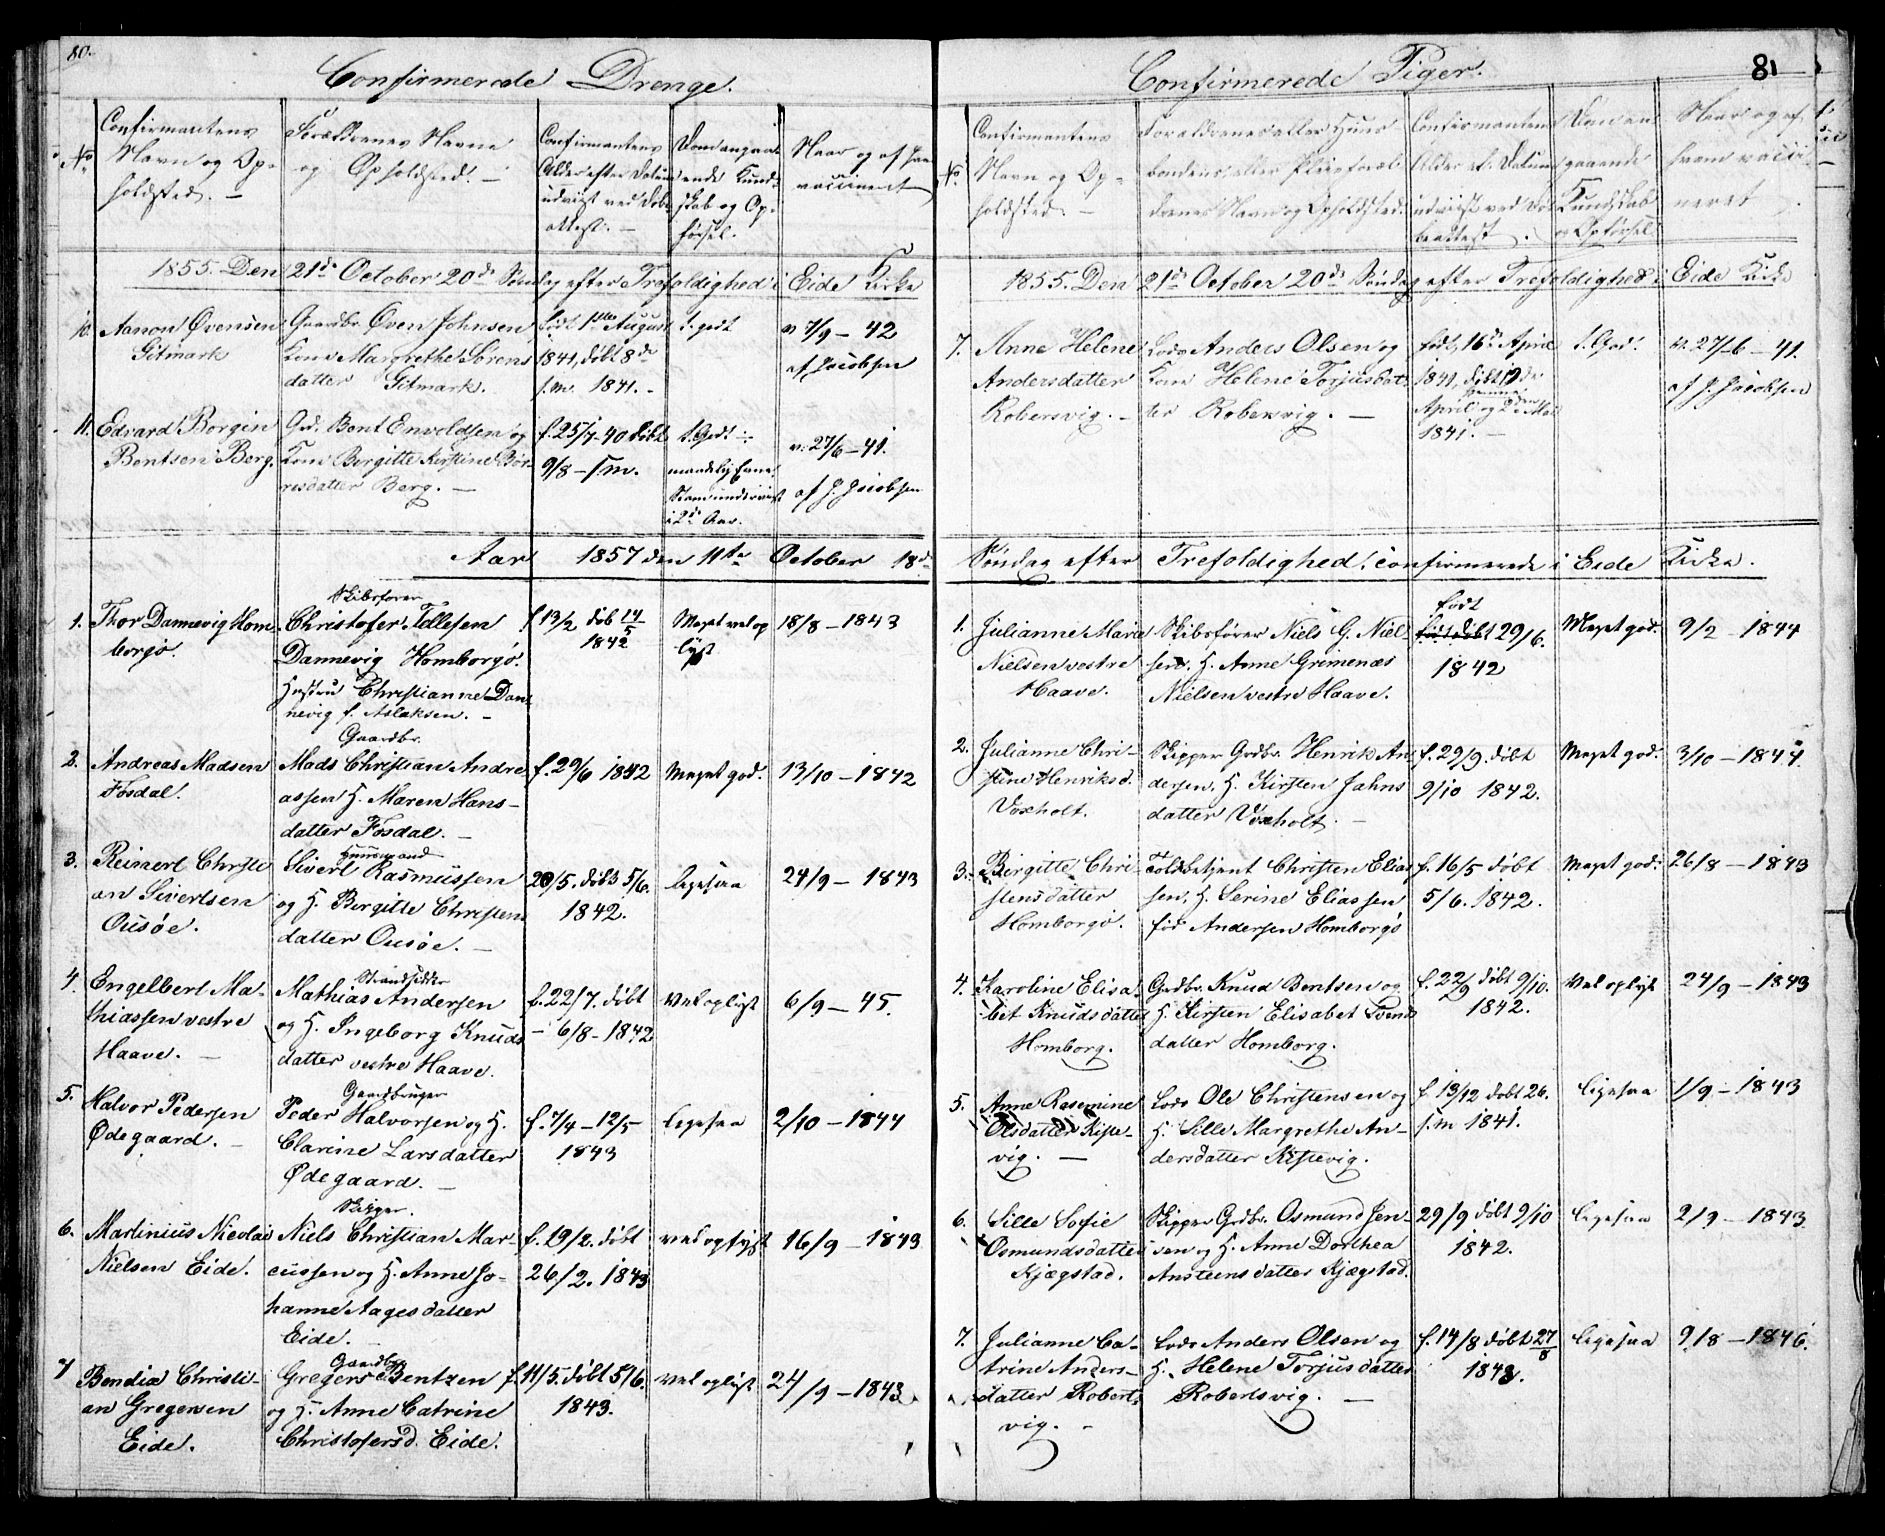 80.
Confirmerede Drenge.
No
Confirmantens
Navn og Op-
holdsted. -
Forældrenes Navne
og Opholdsted. -
Confirmantens
Alder efter Datum
udviist ved Døbe
attest. -
Dom angaa-
ende Kund-
skab og Op-
førsel.
Naar og af hvem
vaccineret
1855. Den 21de October 20de Søndag efter Trefoldighed i Eide Kirke
10. Aanon Øvensen
Gitmark
Gaardbr. Øven Johnsen
Kone Margrethe Sørens
datter Gitmark.
født 1ste August
1841, døbt 8de
s.m. 1841. -
t. godt
v. 7/9 - 42
af Jacobsen
11. Edvard Borgin
Bentsen Berg.
Gd. Bent Envoldsen og
Kone Borgitte Kirstine Bør-
resdatter Berg. -
f. 25/7-40 døbt
9/8 - s.m.
t. Godt
maadelig Evne
i 2de Aar.
v. 27/6 - 41.
af J. Jacobsen
Aar 1857 den 11te October 18de
1. Thor Dannevig Hom
borgø.
Skibsfører
Christofer Tellefsen
Dannevig Homborgø.
Hustru Christianne Dan-
nevig f. Aslaksen. -
f 13/2 døb 14/5
1842
Meget vel op
lyst
18/8 - 1843
2. Andreas Madsen
Fosdal.
Gaardbr.
Mads Christian Andre
assen H. Maren Hans-
datter Fosdal. -
f. 29/6 1842
Meget god.
13/10 - 1842
3. Reinert Christi
an Sivertsen
Ousøe.
Huusmand
Sivert Rasmussen
og H. Birgitte Christens
datter Ousøe. -
20/5. døbt 5/6.
1842.
ligesaa
24/9 - 1843
4. Engelbert Ma-
thiassen vestre
Haave. -
Strandsidder
Mathias Andersen
og H. Ingeborg Knuds
datter vestre Haave.
f. 22/7. døbt
- 6/8 - 1842
Vel oplyst
6/9 - 45.
5. Halvor Pedersen
Ødegaard. -
Gaardbruger
Peder Halvorsen og H.
Clarine Larsdatter
Ødegaard. -
f. 7/4 - 12/5
1843
ligesaa
2/10 - 1844
6. Martinius Nicolai
Nielsen Eide.
Skipper.
Niels Christian Mar-
cussen og H. Anne Jo-
hanne Aagesdatter
Eide. -
f. 19/2. døbt
26/2. 1843
vel oplyst
16/9 - 1843
7 Bendix Christi-
an Gregersen
Eide.
Gaardbr
Gregers Bentzen
og H. Anne Catrine
Christofersd. Eide.
f. 11/5. døbt 5/6.
1843.
vel oplyst
24/9 - 1843
81
Confirmerede Piger.
No.
Confirmantens
Navn og Op-
holdsted. -
Forældrenes eller Huus
bondens, eller Pleieforæl-
drenes Navn og Opholdsted.
Confirmantens
Alder ef. Datum
udviist ved Dø
beattest.
Dom an
gaaende
Kundskab
og Opførsel
Naar og af
hvem vacci-
neret
1855. Den 21de October 20de Søndag efter Trefoldighed i Eide Kirke
7. Anne Helene
Andersdatter
Robersvig. -
Lods Anders Olsen og
Kone Helene Torjusdat-
ter Robersvig. -
født 16de April
1841, døbt
April og 2den Mai
1841. -
t. God.
v. 27/6 - 41.
af J. Jacobsen
Søndag efter Trefoldighed, confirmerede i Eide Kirke.
1. Julianne Marie
Nielsen vestre
Haave.
Skibsfører Niels G. Niel-
sen. H. Anne Grimenæs
Nielsen vestre Haave.
født
døbt 29/6.
1842
Meget god.
9/2 - 1844
2. Julianne Chri-
stine Henriksd.
Voxholt.
Skipper Grdbr. Henrik An
dersen. H. Kirsten Jahns
datter Voxholt. -
f. 29/9 døbt
9/10 1842.
Meget god.
3/10 - 1844
3. Birgitte Chri-
stensdatter
Homborgø.
Toldbetjent Christen Elias
sen. H. Serine Eliassen
født Andersen Homborgø
f. 16/5 døbt
5/6. 1842.
Meget god.
26/8 - 1843
4. Karoline Elisa-
bet Knudsdatter
Homborg.
Grdbr. Knud Bentsen og
H. Kirsten Elisabet Svends
datter Homborg.
f. 22/9 døbt 9/10.
1842.
Vel oplyst
24/9 - 1843
5. Anne Rasmine
Olsdatter Kiste-
vig. -
Lods Ole Christensen og
H. Sille Margrethe An-
dersdatter Kistevig.
f. 13/12 døbt 26.
s.m 1841.
ligesaa
1/9 - 1843
6. Sille Sofie
Osmundsdatter
Kjægstad.
Skipper Grdbr. Osmund Jen-
sen og H. Anne Dorthea
Ansteensdatter Kjægstad.
29/9 døbt 9/10
1842.
ligesaa
2/9 - 1843
7. Julianne Ca-
trine Anders-
datter Roberts
vig. -
Lods Anders Olsen og
H. Helene Torjusdatter
Robertsvig. -
f. 14/8 døbt 27/8
1843.
ligesaa
9/8 - 1846